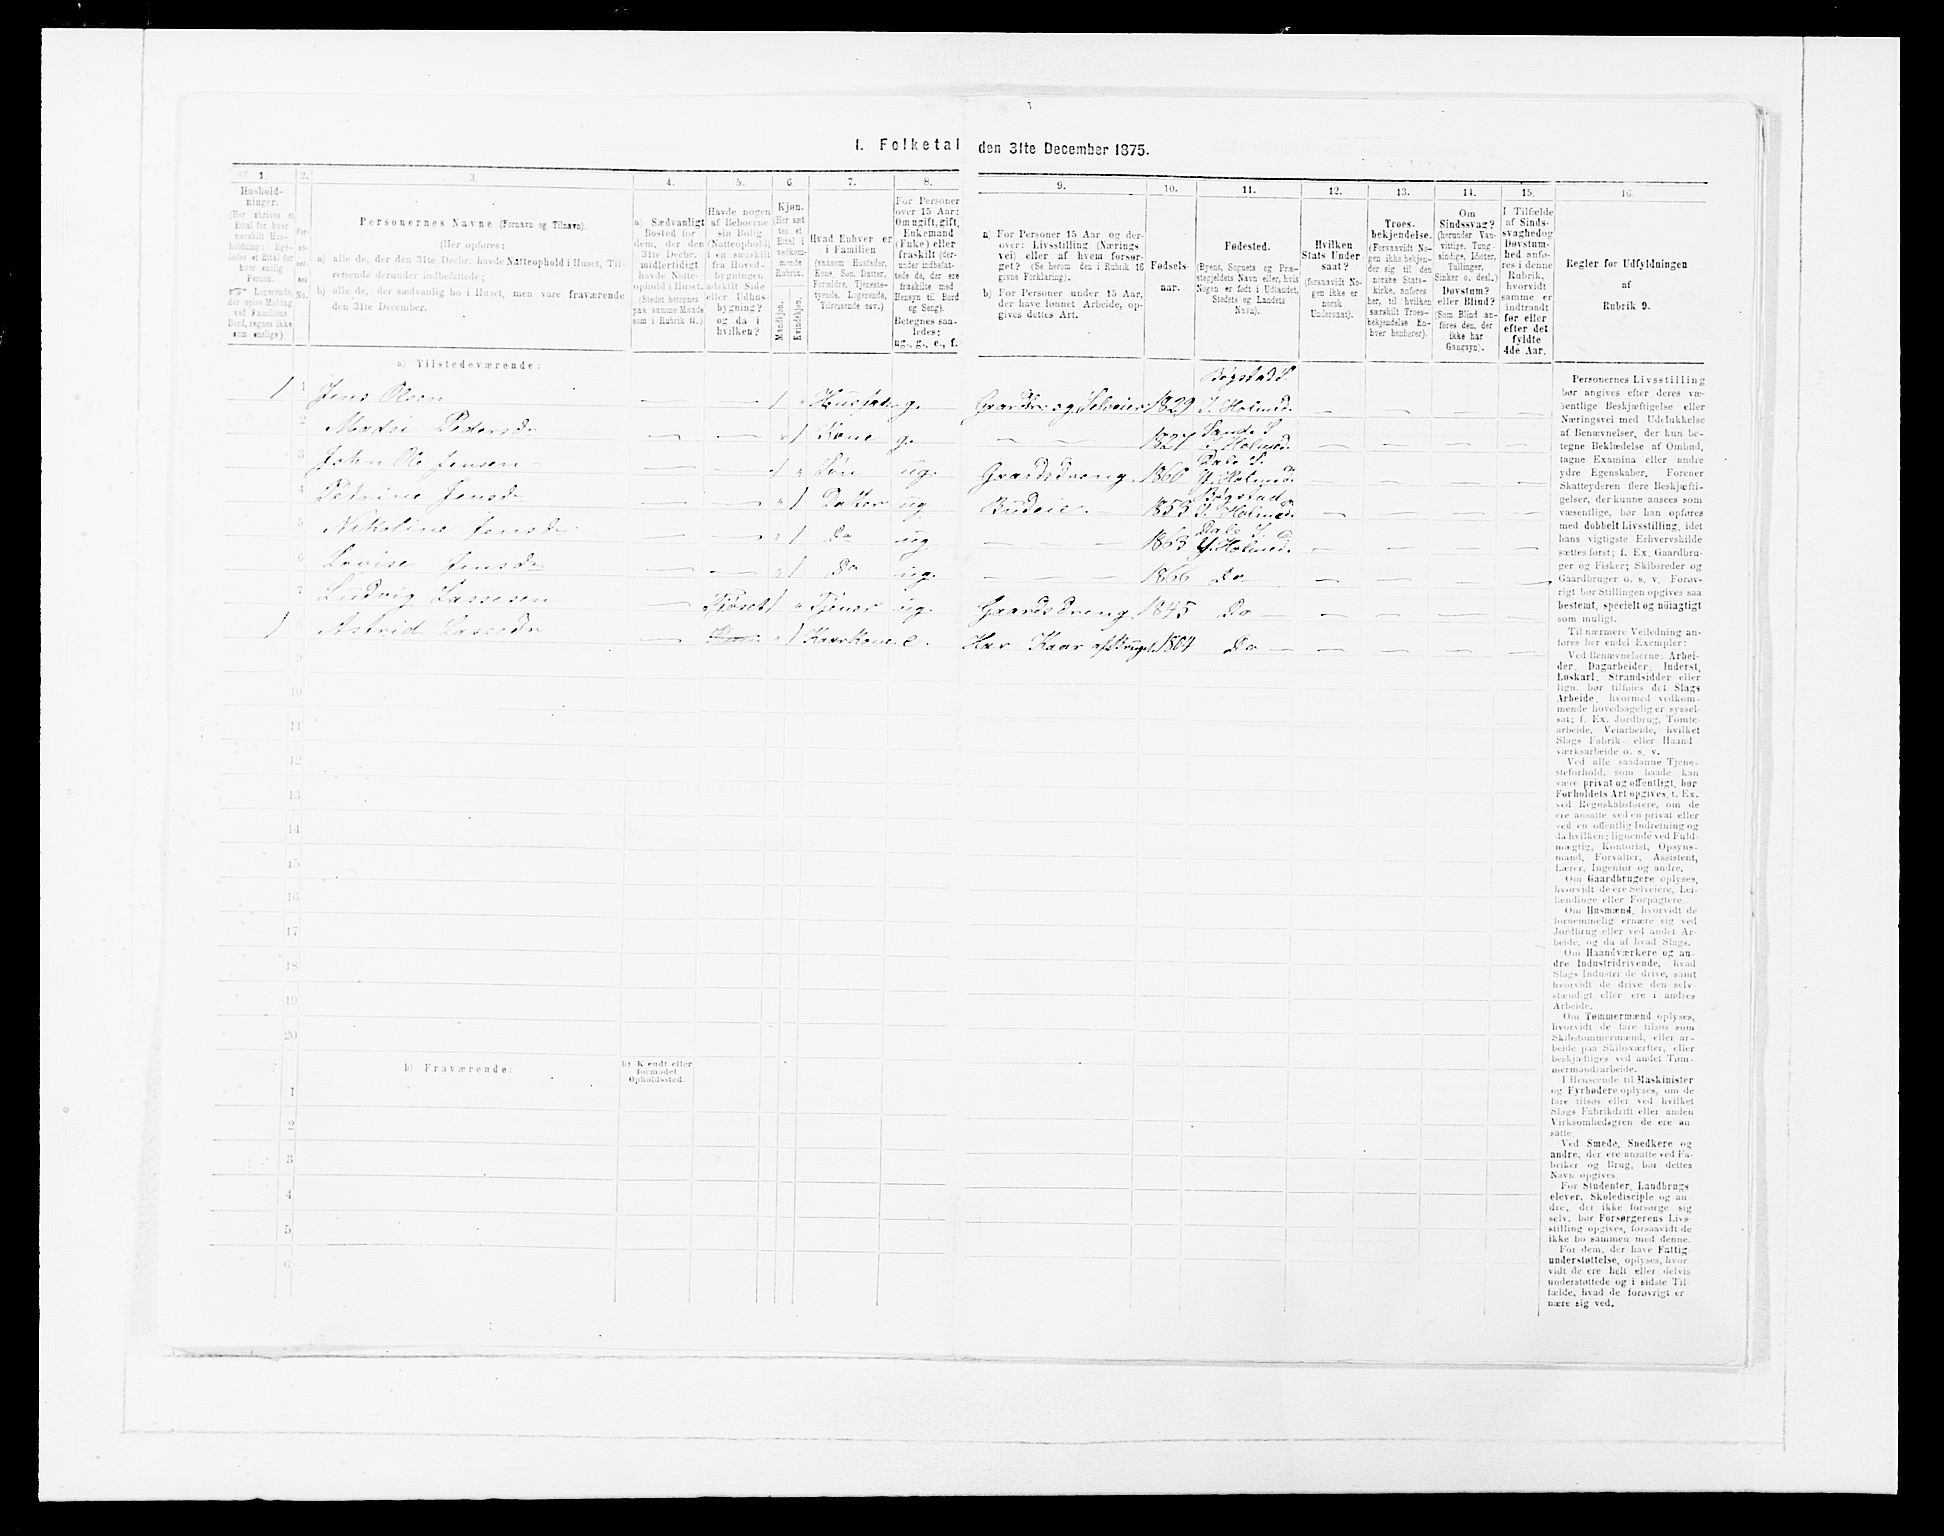 1. Folketal den 31te December 1875.
1. 2. 3. 4. 5. 6. 7. 8. 9. 10. 11. 12. 13. 14. 15. 16.
Hushold-
ninger.
(Her skrives et
Ettal for hver
særskilt Hus-
holdning; lige-
ledes et Ettal for
hver enslig
Person.
Logerende,
der spise Middag
ved Familiens
Bord, regnes ikke
som enslige).
Per-
so-
ner-
nes
No.
Personernes Navne (Fornavn og Tilnavn).
(Her opføres:
a) alle de, der den 31te Decbr. havde Natteophold i Huset, Til-
reisende derunder indbefattede;
b) alle de, der sædvanlig bo i Huset, men vare fraværende
den 31te December.
a) Sædvanligt
Bosted for
dem, der den
31te Decbr.
midlertidigt
havde Natte-
ophold i Huset.
(Stedet betegnes
paa samme Maade
som i Rubrik 11.)
Havde nogen
af Beboerne
sin Bolig
(Natteophold)
i en særskilt
fra Hoved-
bygningen
adskilt Side
eller Udhus-
bygning?
og da i
hvilken?
Kjøn.
(Her sæt-
tes et
Ettal i
vedkom-
mende
Rubrik.
Mandkjøn.
Kvindekjøn.
Hvad Enhver er
i Familien
(saasom Husfader,
Kone, Søn, Datter,
Forældre, Tjeneste-
tyende, Logerende,
Tilreisende osv.)
For Personer
over 15 Aar:
Om ugift, gift,
Enkemand
(Enke) eller
fraskilt (der-
under indbefat-
tede de, der ere
fraskilte med
Hensyn til Bord
og Seng).
Betegnes saa-
ledes:
ug., g., e., f.
a) For Personer 15 Aar og der-
over: Livsstilling (Nærings-
vei) eller af hvem forsør-
get? (Se herom den i Rubrik 16
givne Forklaring).
b) For Personer under 15 Aar,
der have lønnet Arbeide, op-
gives dettes Art.
Fødsels-
aar.
Fødested.
(Byens, Sognets og Præ-
stegjeldets Navn eller, hvis
Nogen er født i Udlandet,
Stedets og Landets
Navn).
Hvilken
Stats Under-
saat?
(forsaavidt No-
gen ikke er
norsk
Undersaat).
Troes-
bekjendelse.
(Forsaavidt No-
gen ikke bekjen-
der sig til den
norske Stats-
kirke, anføres
her, til hvilken
særskilt Troes-
bekjendelse En-
hver henhører).
Om
Sindssvag?
(herunder Van-
vittige, Tung-
sindige, Idioter,
Tullinger,
Sinker o. desl.)
Døvstum?
eller Blind?
(Som Blind an-
føres den, der
ikke har
Gangsyn).
I Tilfælde
af Sinds-
svaghed og
Døvstum-
hed anfø-
res i denne
Rubrik,
hvorvidt
samme er
indtraadt
før eller
efter det
fyldte
4de Aar.
Regler for Udfyldningen
af
Rubrik 9.
a) Tilstedeværende:
1 1 Jens Olsen — — 1 " Husfader g. Gaardbr. og Selveier 1829 Bøgstad S. Y. Holmed. — — — —
2 Madsi Pedersdr — — " 1 Kone g. — — 1827 Sande S. Y. Holmed. — — — —
3 John Ole Jensen — — 1 " Søn ug. Gaardsdreng 1860 Dale S. Y. Holmed. — — — —
4 Petrine Jensdr — — " 1 Datter ug Budeie. 1853 Bøgstad Y. Holmed. — — — —
5 Nikoline Jensdr — — " 1 Do ug — — 1863 Dale S. Y. Holmed. — — — —
6 Lovise Jensdr — — " 1 Do ug. — — 1866 Do — — — —
7 Ludvig Lassesen — Fjøset 1 " Tjener ug. Gaardsdreng 1845 Do — — — — —
1 8 Astrid Lassedr — " 1 Kaarkone e. Har Kaar af Bruget. 1804 Do — — — — —
9
10
11
12
13
14
15
16
17
18
19
20
b) Fraværende:
b) Kjendt eller
formodet
Opholdssted.
1
2
3
4
5
6
Personernes Livsstilling
bør angives efter deres væ-
sentlige Beskjæftigelse eller
Næringsvei med Udelukkelse
af Benævnelser, der kun be-
tegne Beklædelse af Ombud,
tagne Examina eller andre
ydre Egenskaber. Forener
Skatteyderen flere Beskjæfti-
gelser, der kunne ansees som
væsentlige, bør han opføres
med dobbelt Livsstilling, idet
hans vigtigste Erhvervskilde
sættes først; f. Ex. Gaardbru-
ger og Fisker; Skibsreder og
Gaardbruger o. s. v. Forøv-
rigt bør Stillingen opgives saa
bestemt, specielt og nøiagtigt
som muligt.
Til nærmere Veiledning an-
føres her endel Exempler:
Ved Benævnelserne: Arbei-
der, Dagarbeider, Inderst,
Løskarl, Strandsidder eller
lign. bør tilføies det Slags
Arbeide, hvormed vedkom-
mende hovedsagelig er syssel-
sat; f. Ex. Jordbrug, Tomte-
arbeide, Veiarbeide, hvilket
Slags Fabrik- eller Haand-
værksarbeide o. s. v.
Ved alle saadanne Tjene-
steforhold, som baade kan
være privat og offentligt, bør
Forholdets Art opgives, f. Ex.
ved Regnskabsførere, om de
ere ansatte ved en privat eller
ved en offentlig Indretning og
da hvilken; lignende ved Fuld-
mægtig, Kontorist, Opsyns-
mand, Forvalter, Assistent,
Lærer, Ingeniør og andre.
Om Gaardbrugere oplyses,
hvorvidt de ere Selveiere, Lei-
lændinge eller Forpagtere.
Om Husmænd, hvorvidt de
fornemmelig ernære sig ved
Jordbrug eller ved andet Ar-
beide, og da af hvad Slags.
Om Haandværkere og an-
dre Industridrivende, hvad
Slags Industri de drive, samt
hvorvidt de drive den selv-
stændigt eller ere i andres
Arbeide.
Om Tømmermænd oplyses,
hvorvidt de fare tilsøs som
Skibstømmermænd, eller ar-
beide paa Skibsværfter, eller
beskjæftiges ved andet Tøm-
mermandsarbeide.
I Henseende til Maskinister
og Fyrbødere oplyses, om de
fare tilsøs eller ved hvilket
Slags Fabrikdrift eller anden
Virksomhedsgren de ere an-
satte.
Ved Smede, Snedkere og
andre, der ere ansatte ved Fa-
briker og Brug, bør dettes
Navn opgives.
For Studenter, Landbrugs-
elever, Skoledisciple og an-
dre, der ikke forsørge sig
selv, bør Forsørgerens Livs-
stilling opgives, forsaavidt de
ikke bo sammen med denne.
For dem, der have Fattig-
understøttelse, oplyses, hvor-
vidt de ere helt eller delvis
understøttede og i sidste Til-
fælde, hvad de forøvrigt er-
nære sig ved.